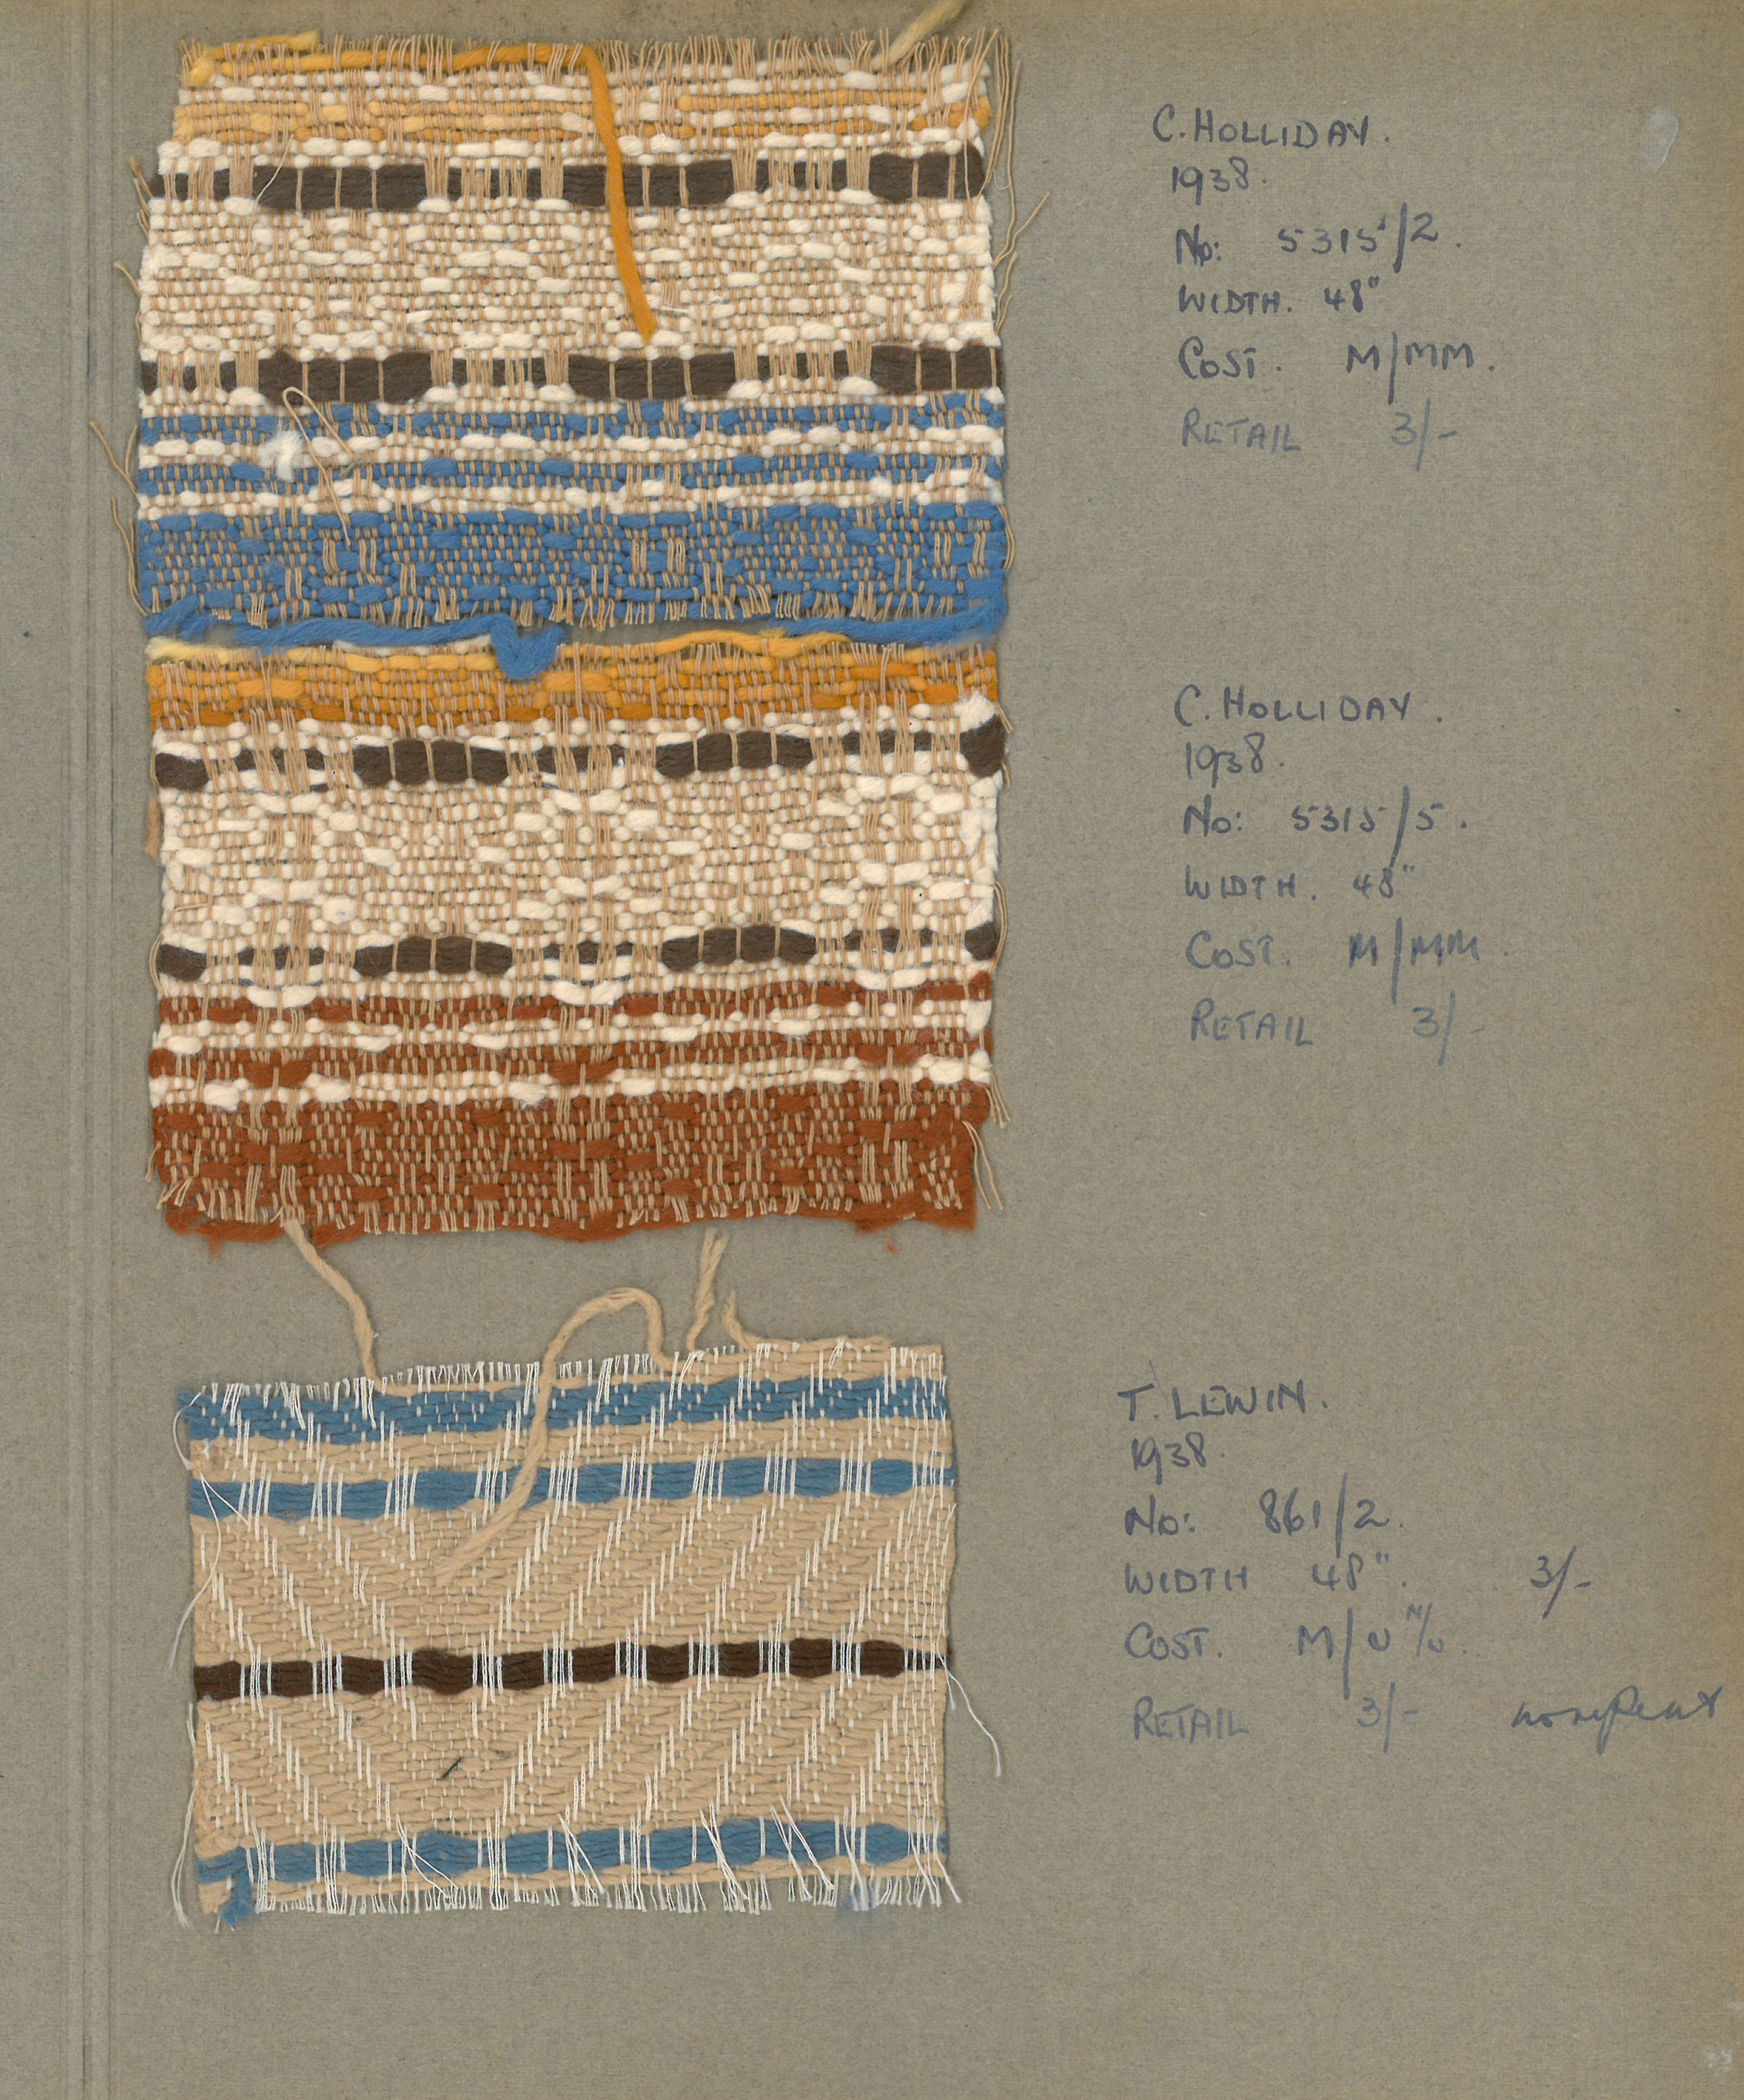 C. HOLLIDAY.
1938.
No: 5315/2.
WIDTH. 48"
COST. M/MM.
RETAIL 3/-
C. HOLLIDAY.
1938.
No: 5315/5.
WIDTH. 48"
COST. M/MM.
RETAIL 3/-
T. LEWIN.
1938.
No: 861/2.
WIDTH 48". 3/-
COST. M/U
RETAIL 3/- no repeat